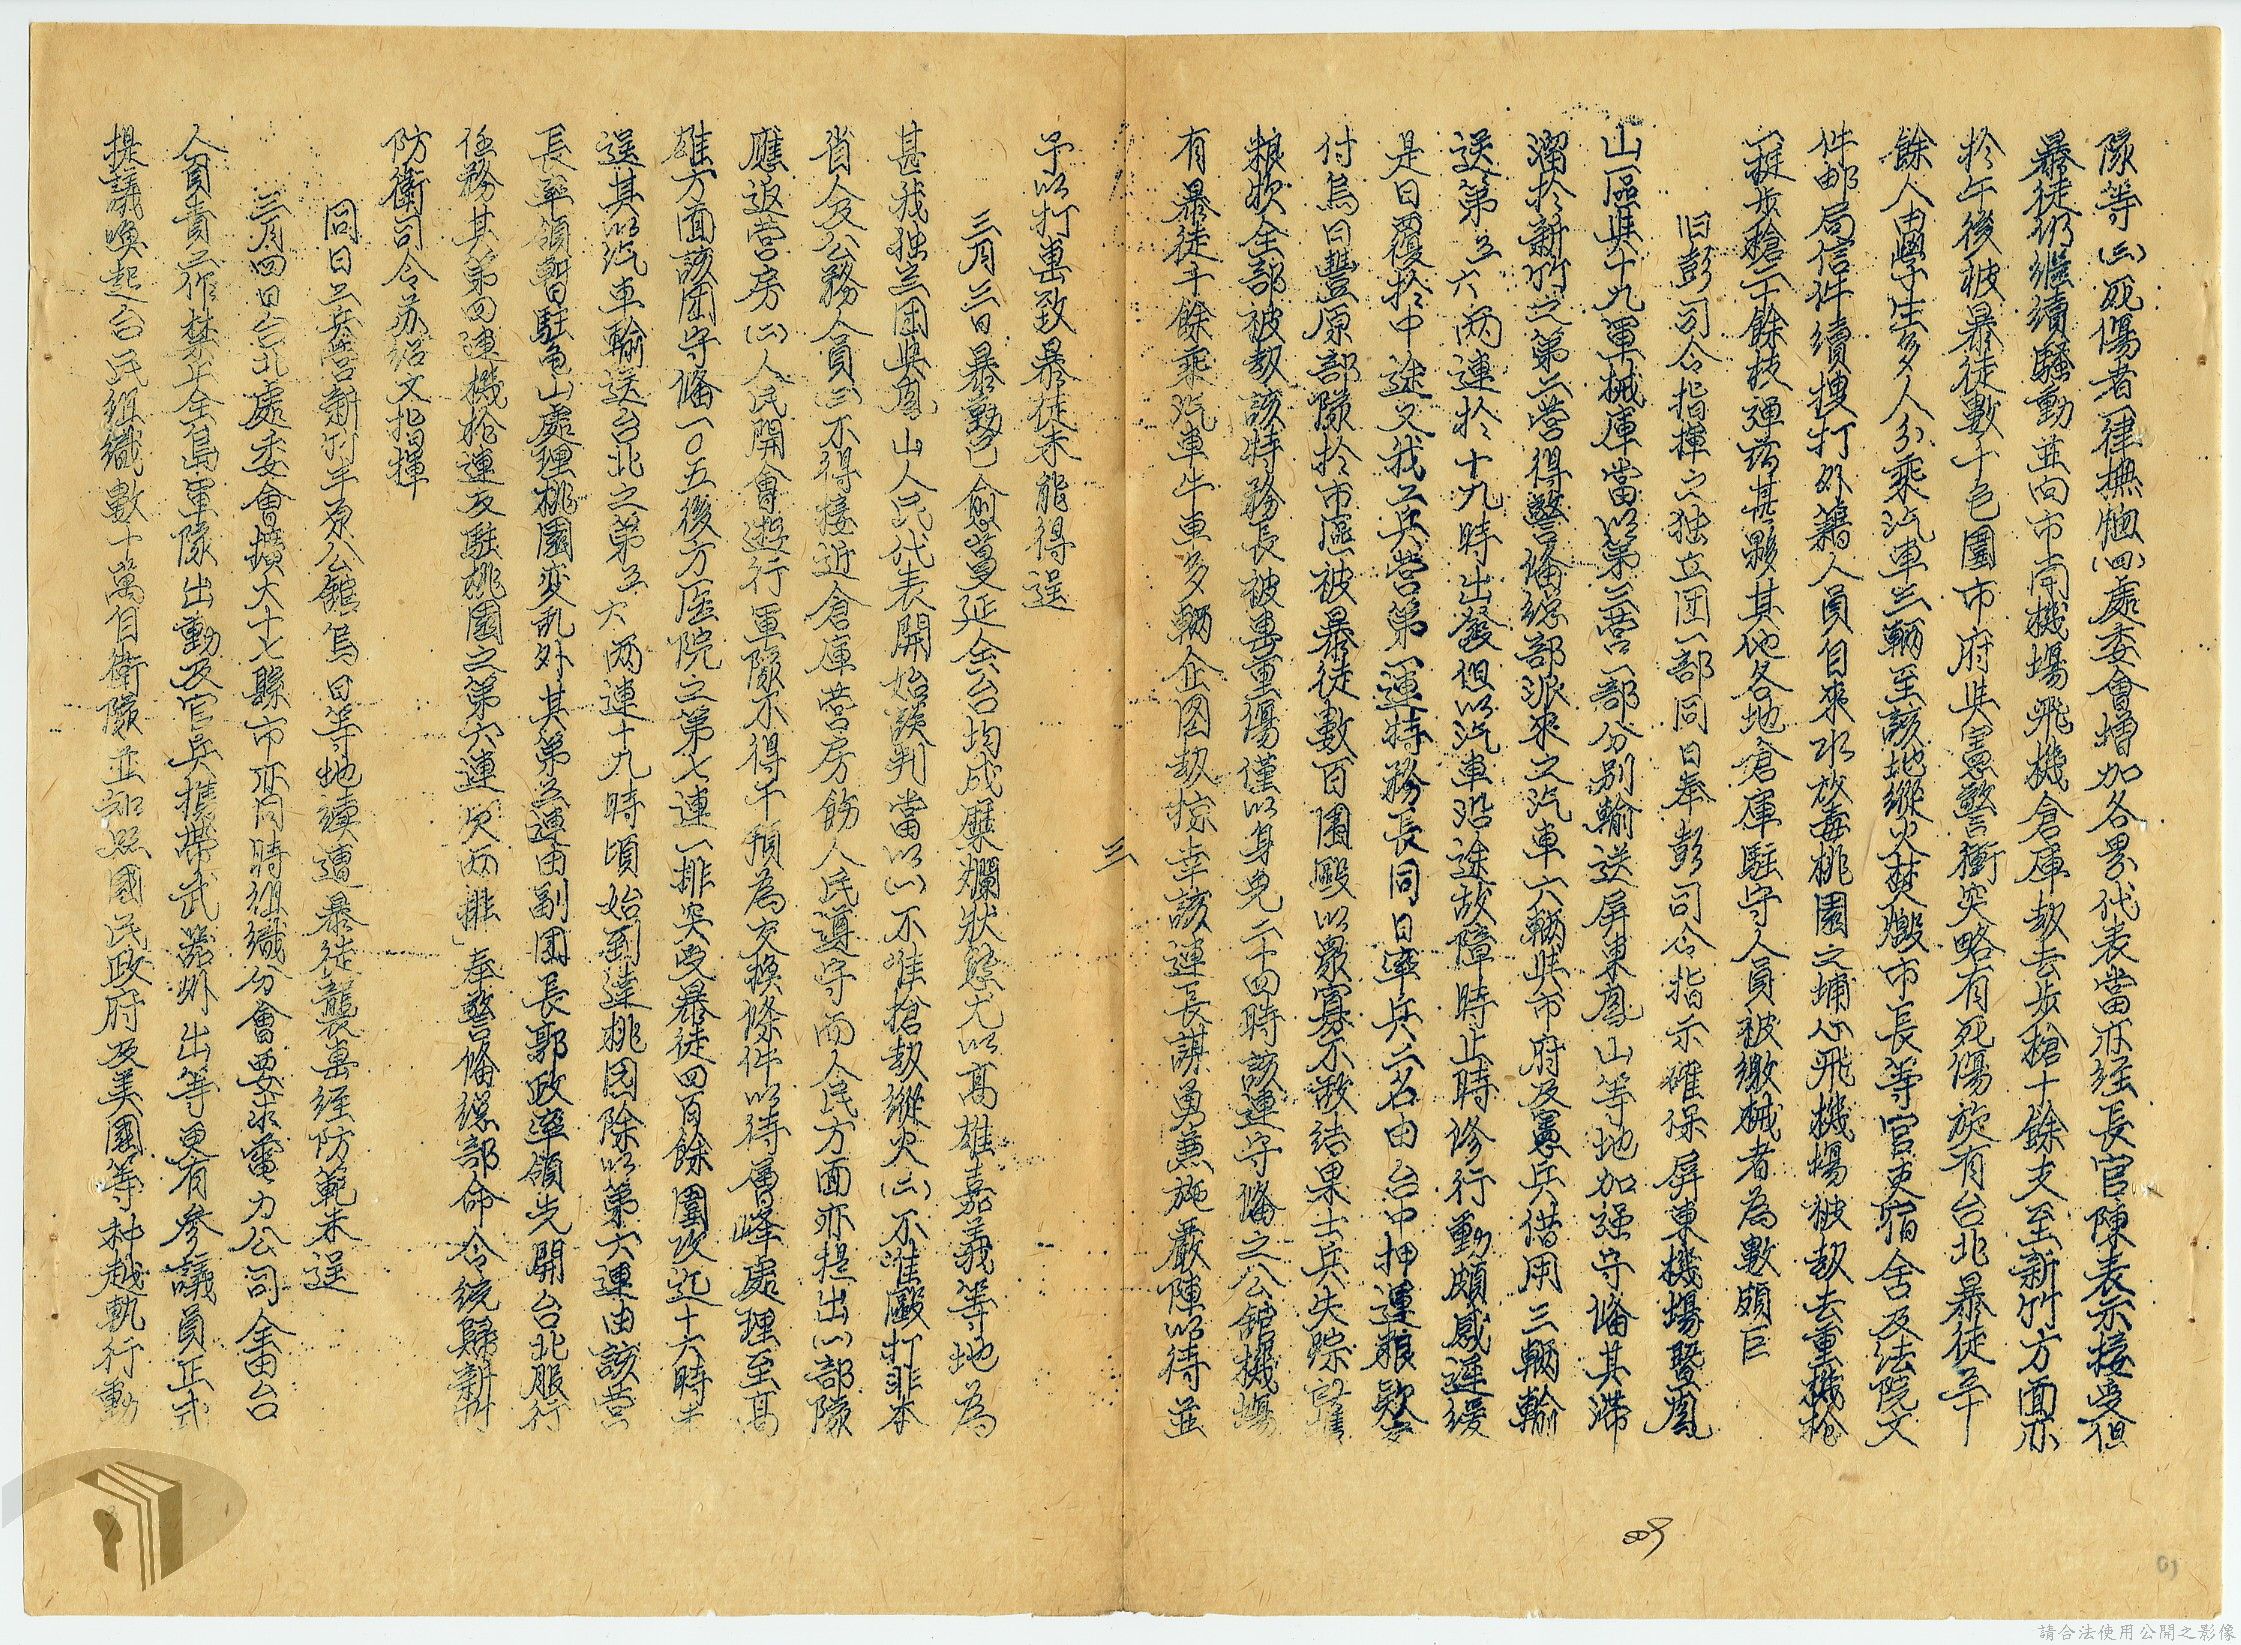 隊等(三)死傷者一律撫卹(四)處委會增加各界代表當亦經長官陳表示接受但
暴徒仍繼續騷動並向市南機場飛機倉庫劫去步槍十餘支至新竹方面亦
於午後被暴徒數千包圍市府與憲警衝突略有死傷旋有台北暴徒
餘人由學生多人分乘汽車三輛至該地縱火焚燬市長等官吏宿舍及法院文
件郵局信件續搜打外籍人員自來水放毒桃園之埔心飛機場被劫去重機槍
一挺步槍二十餘枝彈藥甚夥其他各地倉庫駐守人員被繳械者為數頗巨
旧彭司令指揮之独立团一部同日奉彭司令指示確保屏東機場暨鳳
山區與十九軍械庫當以第三营一部分別輸送屏東鳳山等地加強守備其滯
溜於新竹之第二营得警備總部派來之汽車六輛與市府及憲兵借用三輛輸
送第五六两連於十九時出發但以汽車沿途故障時止時修行動頗感遲緩
是日覆於中途又我工兵营第一連特務長同日率兵二名由台中押運粮欵
付烏日豐原部隊於市區被暴徒數百圍毆以眾寡不敵結果士兵失踪
粮欵全部被劫該特務長被毒重傷僅以身免二十四時該連守備之公館機場
有暴徒千餘乘汽車牛車多輛企图劫掠幸該連長謀勇兼施嚴陣以待並
三
予以打擊致暴徒未能得逞
三月三日暴動已愈蔓延全台均成糜爛狀態尤以高雄嘉義等地為
甚我独立团與鳳山人民代表開始談判當以(一)不准搶劫縱火(二)不准毆打非本
省人及公務人員(三)不得接近倉庫营房飭人民遵守而人民方面亦提出(一)部隊
應返营房(二)人民開會遊行軍隊不得干預為交換條件以待層峰處理至高
雄方面該团守備一〇五後方医院之第七連一排突受暴徒四百餘圍攻迄十六時未
逞其以汽車輸送台北之第五六两連十九時頃始到達桃园除以第六連由該营
長率領暫駐龜山處理桃園変乱外其第五連由副团長郭政率領先開台北服行
任務其第四連機枪連及駐桃園之第六連(欠两排)奉警備總部命令統歸新竹
防衛司令苏绍文指揮
同日工兵营新竹羊寮公館烏日等地續遭暴徒襲击经防範未逞
三月四日台北處委會擴大十七縣市亦同時組織分會要求電力公司全由台
人員責工作禁止全島軍隊出動及官兵携帶武器外出等更有參議員正式
提議喚起台民組織數十萬自衛隊並知照國民政府及美國等种越軌行動
請合法使用公開之影像